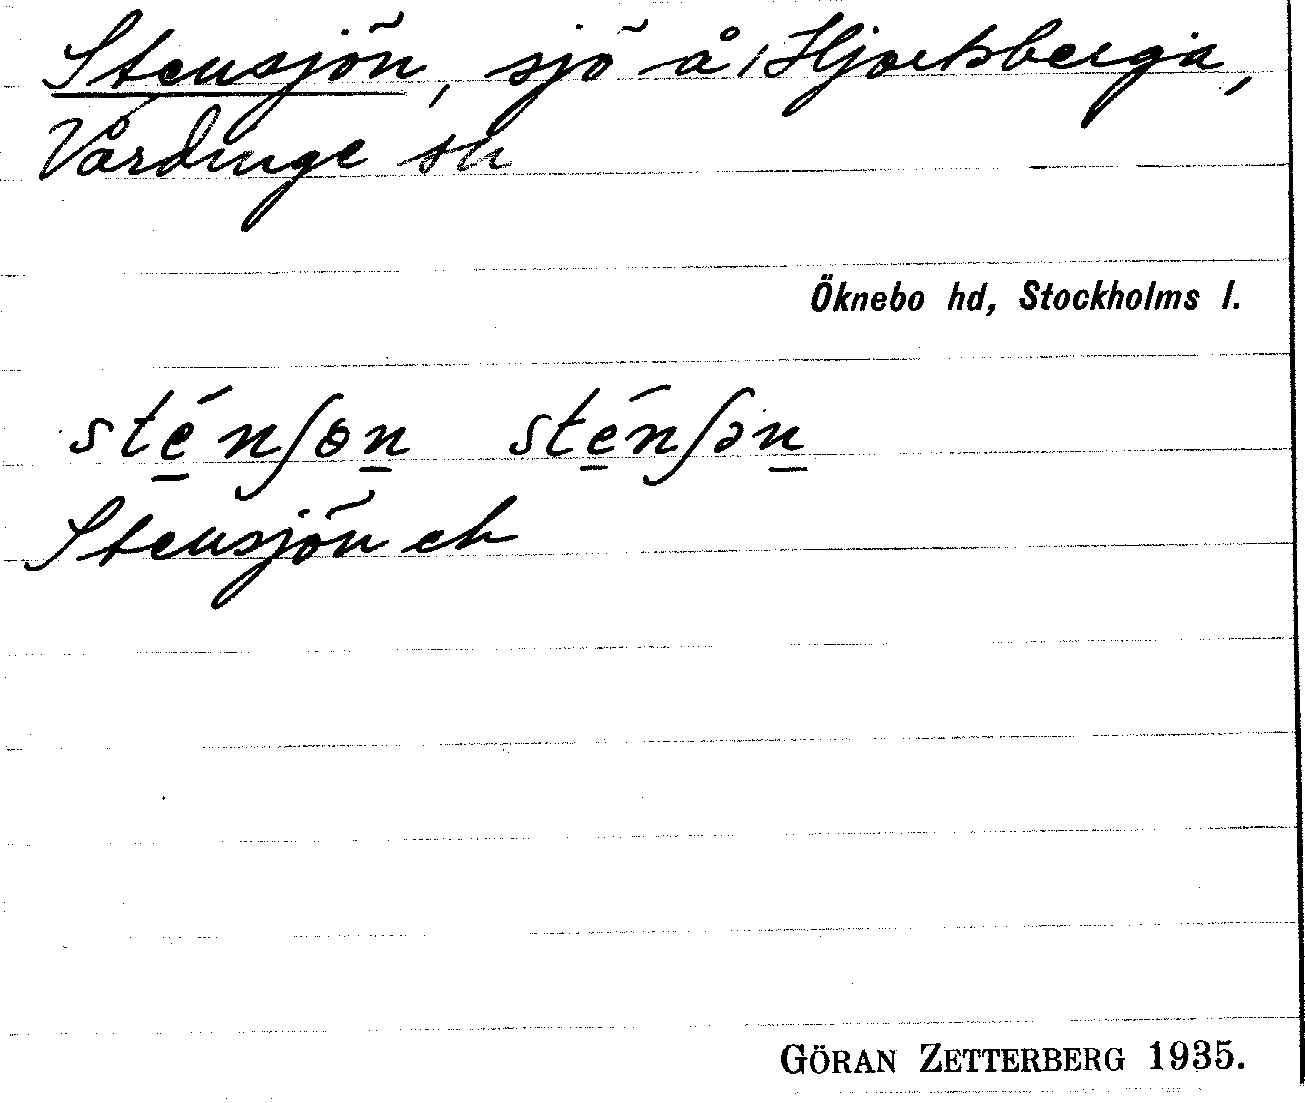 Stensjön, sjö å Hjortsberga,
Vårdinge sn
Öknebo hd, Stockholms l.
sténʃɵn sténʃən
Stensjön ek
GÖRAN ZETTERBERG 1935.